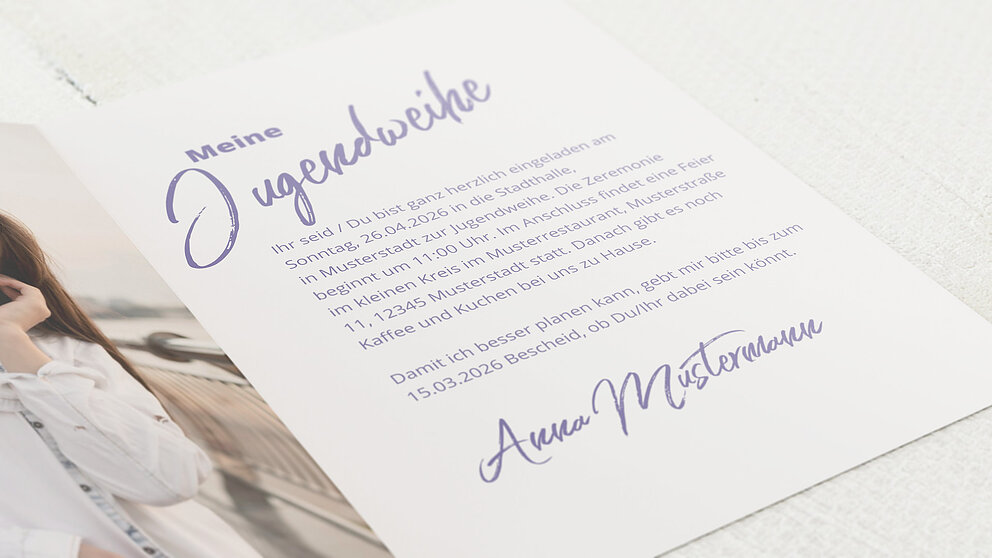 Meine
Jugendweihe
Ihr seid / Du bist ganz herzlich eingeladen am
Sonntag, 26.04.2026 in die Stadthalle,
in Musterstadt zur Jugendweihe. Die Zeremonie
beginnt um 11:00 Uhr. Im Anschluss findet eine Feier
im kleinen Kreis im Musterrestaurant, Musterstraße
11, 12345 Musterstadt statt. Danach gibt es noch
Kaffee und Kuchen bei uns zu Hause.
Damit ich besser planen kann, gebt mir bitte bis zum
15.03.2026 Bescheid, ob Du/Ihr dabei sein könnt.
Anna Mustermann